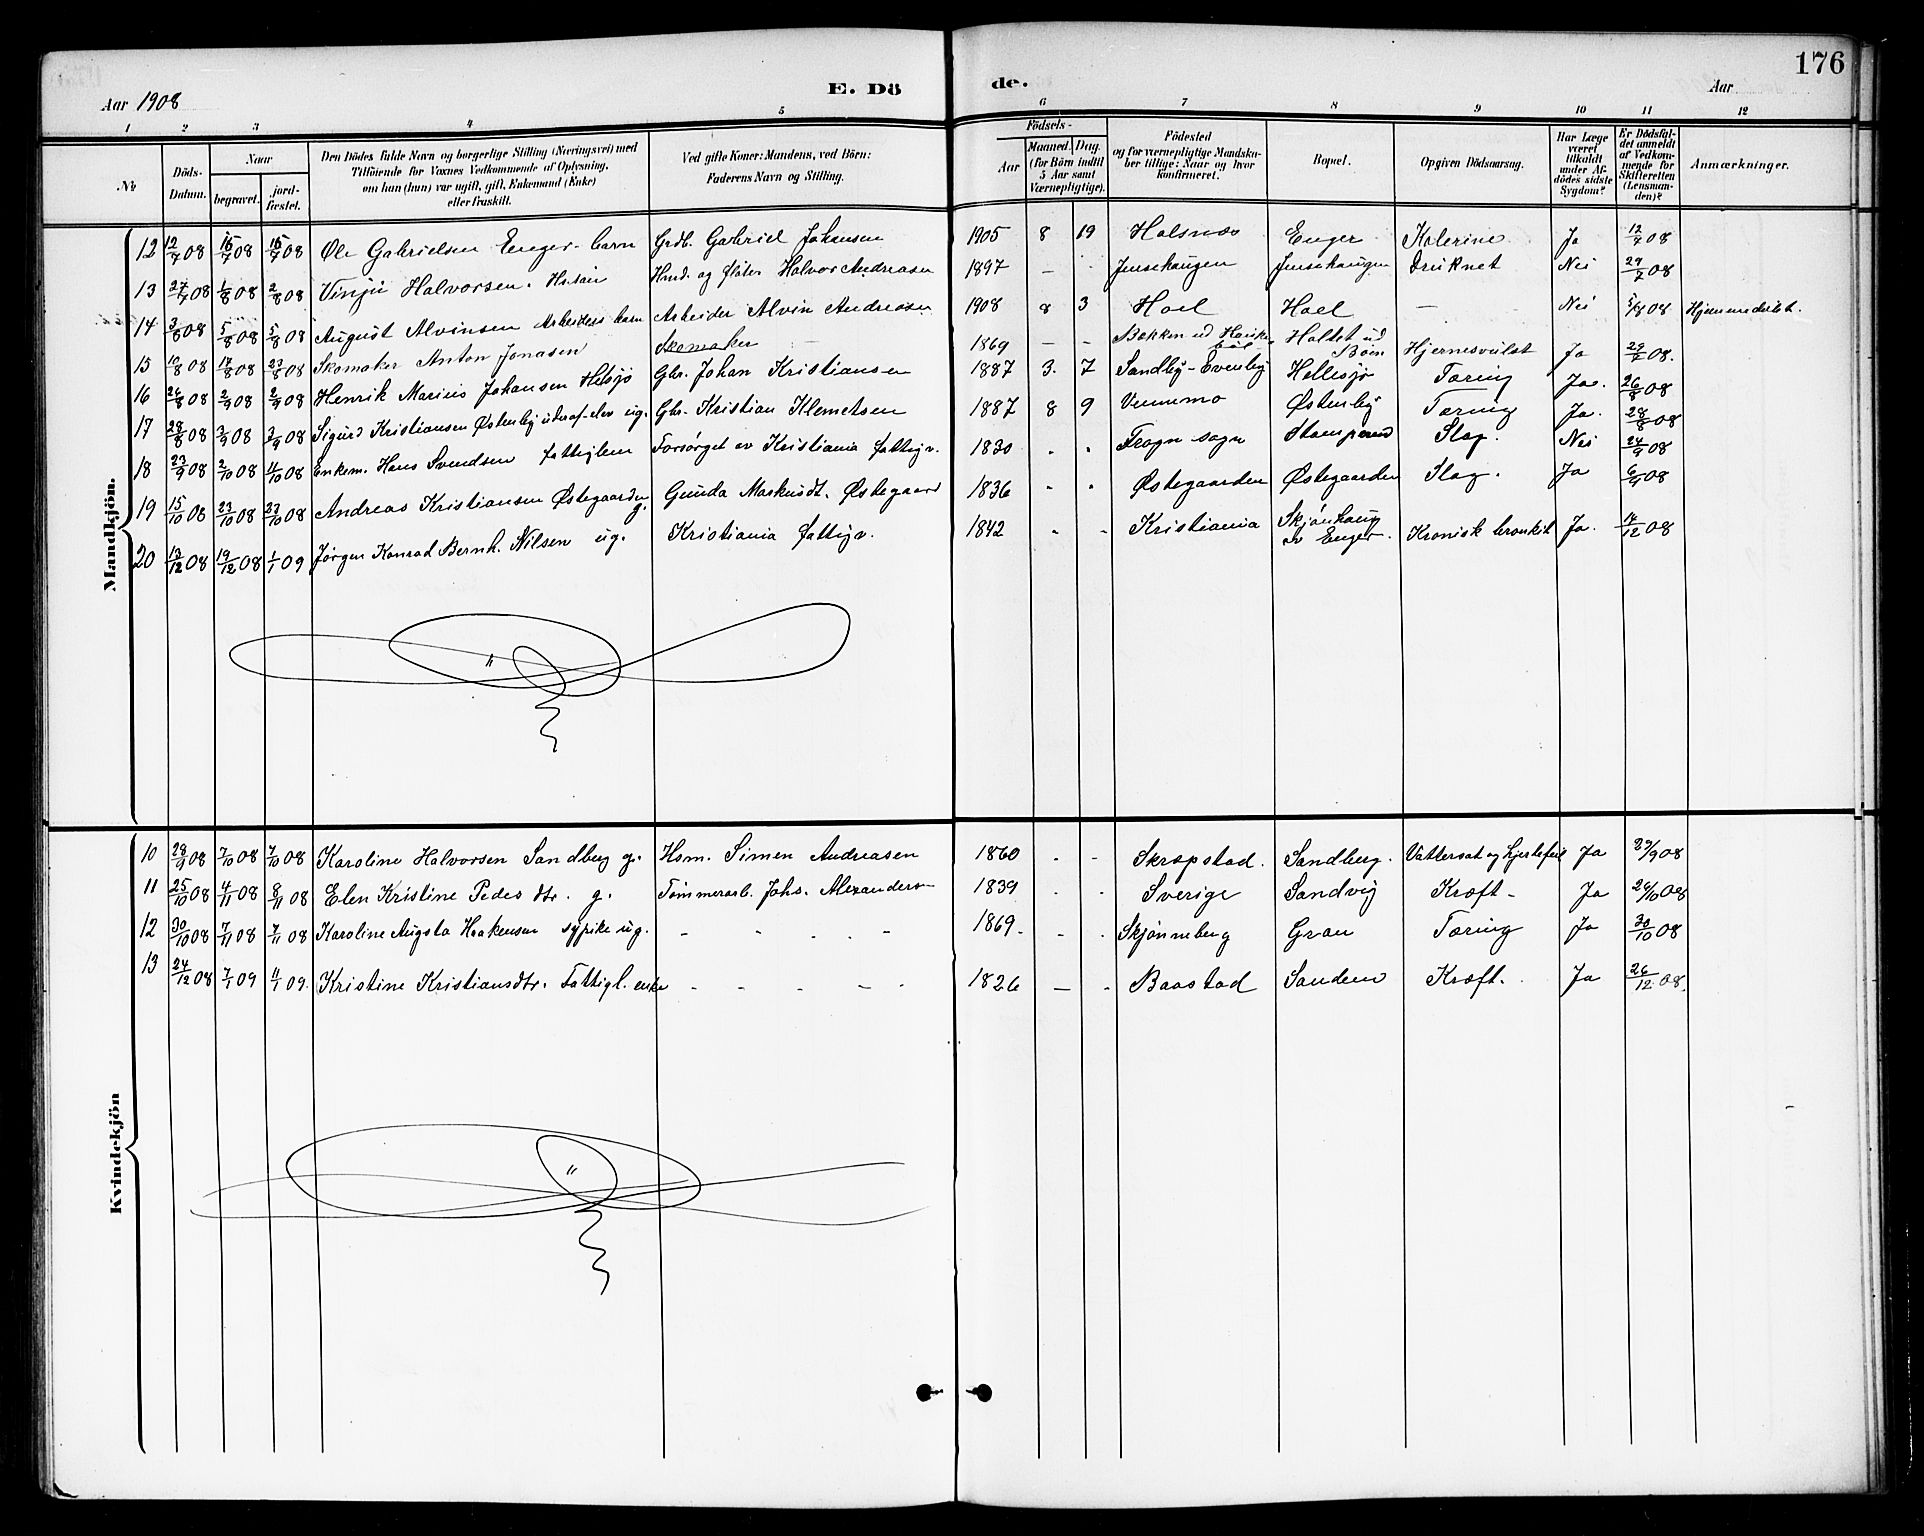 176
Aar 1908
E. Dö
de.
Aar
1 2 3 4 5 6 7 8 9 10 11 12
No
Döds-Datum.
Naar
begravet.
jord-fæstet.
Den Dödes fulde Navn og borgerlige Stilling (Næringsvei) med Tilföiende for Voxnes Vedkommende af Oplysning, om han (hun) var ugift, gift, Enkemand (Enke) eller fraskilt.
Ved gifte Koner: Mandens, ved Börn: Faderens Navn og Stilling.
Födsels-
Aar
Maaned. Dag. (for Börn indtil 5 Aar samt Værnepligtige).
Födested og for værnepligtige Mandska-ber tillige: Naar og hvor konfirmeret.
Bopæl.
Opgiven Dödsaarsag.
Har Læge været tilkaldt under Af-dödes sidste Sygdom?
Er Dödsfal-det anmeldt af Vedkom-mende for Skifteretten (Lensman-den)?
Anmærkninger.
Mandkjön.
12 12/7 08 16/7 08 16/7 08 Ole Gabrielsen Enger barn Grdb. Gabriel Johansen 1905 8 19 Halsnæs Enger Katerine Ja 12/7 08
13 27/7 08 1/8 08 2/8 08 Halvorsen Halvor Andreasen 1897 – Jensehaugen Jensehaugen Druknet Nei 29/7 08
14 3/8 08 5/8 08 5/8 08 August Alvinsen Arbeiders barn Arbeider Alvin Andreasen 1908 8 3 Hoel Hoel – Nei 5/8 08 Hjemmedøbt.
15 10/8 08 17/8 08 23/8 08 Skomaker Anton Jonasen Skomaker – 1869 – – Bakken Haltet ud Böen Hjernesvulst Ja 08.
16 26/8 08 2/9 08 2/9 08 Henrik Marius Johansen Helsjø Gbr. Johan Kristiansen 1887 3. 7 Sandby-Evenby Hellesjø Tæring Ja. 26/8 08
17 28/8 08 3/9 08 3/9 08 Sigurd Kristiansen Østenby ug. Gbr. Kristian Klemetsen 1887 8 9 Vennemo Østenby Tæring Ja. 28/8 08
18 23/9 08 2/10 08 4/10 08 Enkem. Hans Svendsen fattiglem Forsørget av Kristiania fattigv. 1830 Frogn sogn Stamperud Slag. Nei 24/9 08
19 15/10 08 23/10 08 23/10 08 Andreas Kristiansen Østegaarden g. Gunda Markusdt. Østegaard 1836 Østegaarden Østegaarden Slag. Ja 08
20 13/12 08 19/12 08 1/1 09 Jørgen Konrad Bernh. Nilsen ug. Kristiania fattigv. 1842 Kristiania Skjønhaug Enger. Kronisk bronkit Ja. 14/12 08
Kvindekjön
10 28/9 08 7/10 08 7/10 08 Karoline Halvorsen Sandberg g. Hsm. Simen Andreasen 1860 Skrepstad. Sandberg. Vattersot og hjertefeil Ja 29/9 08
11 25/10 08 4/11 08 8/11 08 Elen Kristine Pedesdtr. g. Tømmerarb. Johs. Alexandersen 1839 Sverige Sandvig Kræft – Ja 26/10 08
12 30/10 08 7/11 08 7/11 08 Karoline Augsta Haakensen sypike ug. 1869 Skjønneberg Gran Tæring Ja 30/10 08
13 24/12 08 7/1 09 11/1 09. Kristine Kristiansdtr. Fattigl. enke 1826 – Baastad Sandem Kræft. Ja 26/12 08.